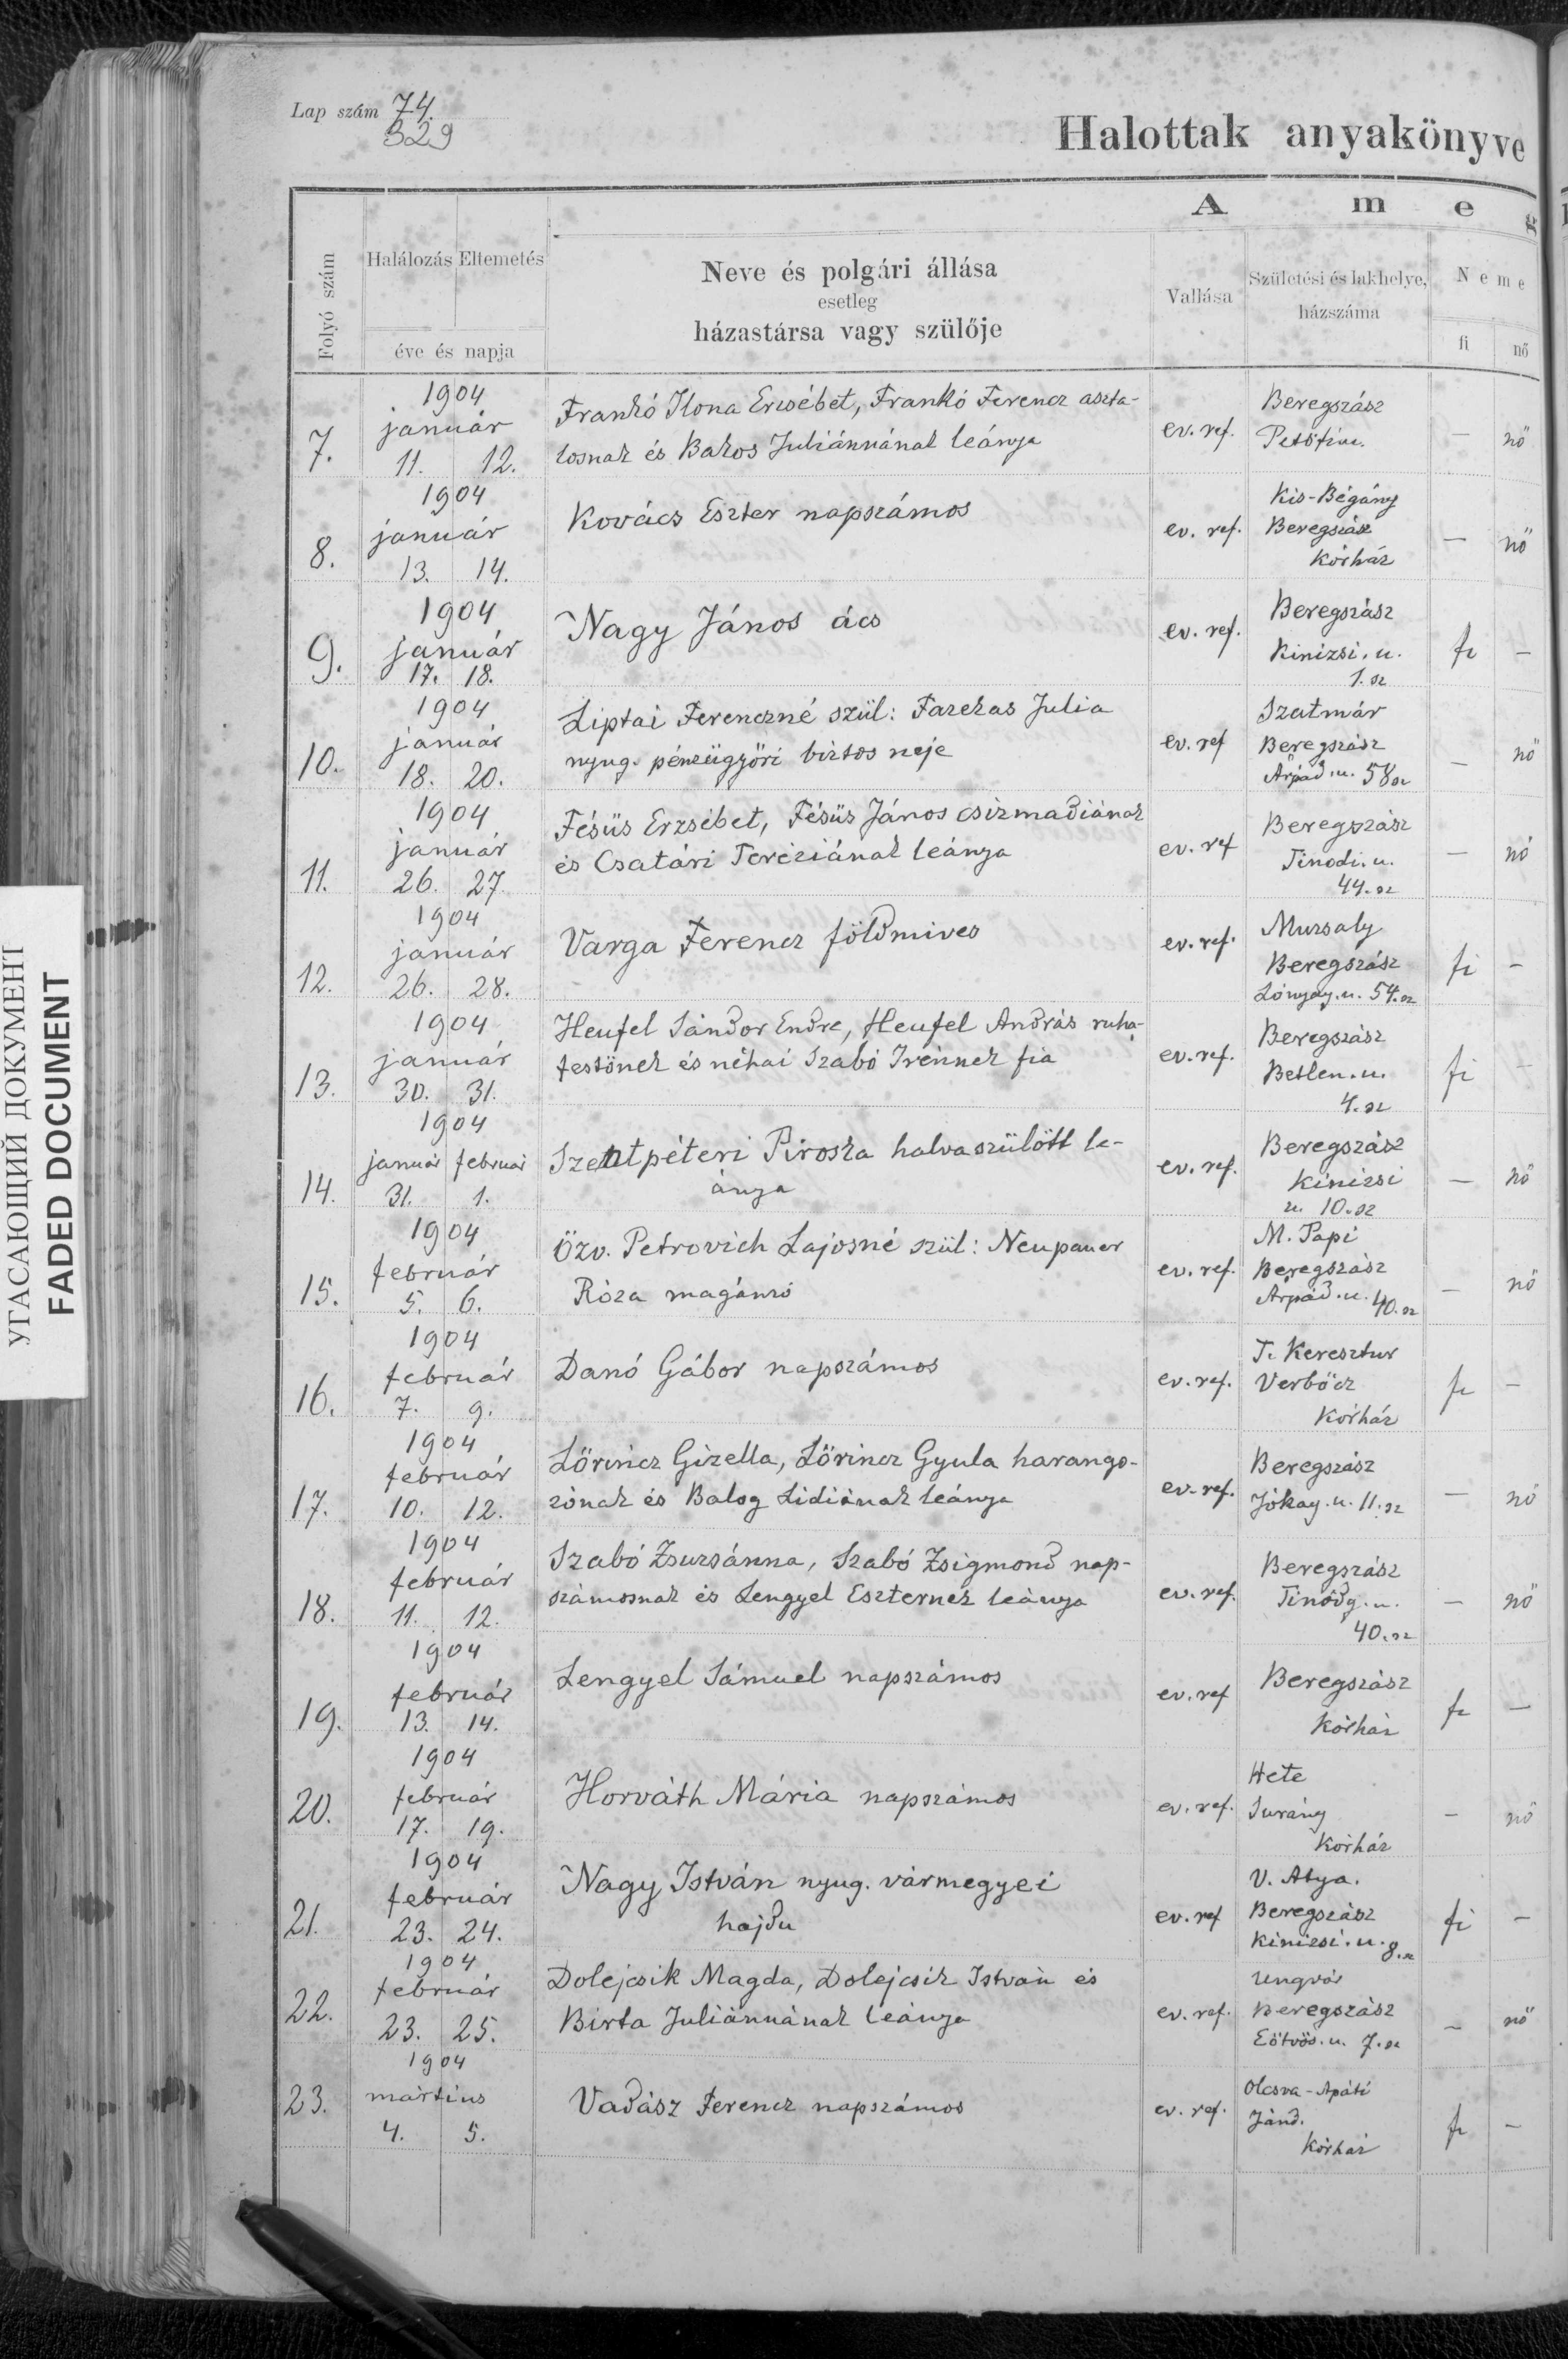 Lap szám 74.
329
Halottak anyakönyve
A m e g
Folyó szám
Halálozás Eltemetés
éve és napja
Neve és polgári állása
esetleg
házastársa vagy szülője
Vallása
Születési és lakhelye,
házszáma
Neme
fi nő
1904
január
7. 11. 12.
Frankó Ilona Erzsébet, Frankó Ferencz aszta-
losnak és Bakos Juliánnának leánya
ev. ref.
Beregszász
Petőfi u.
— nő
1904
január
8. 13. 14.
Kovács Eszter napszámos
ev. ref.
Kis-Bégány
Beregszász
Kórház
— nő
1904
január
9. 17. 18.
Nagy János ács
ev. ref.
Beregszász
Kinizsi. u.
1. sz
fi —
1904
január
10. 18. 20.
Liptai Ferenczné szül: Fazekas Julia
nyug. pénzügyőri biztos neje
ev. ref
Szatmár
Beregszász
Árpád. u. 58 sz
— nő
1904
január
11. 26. 27
Fésüs Erzsébet, Fésüs János csizmadiának
és Csatári Teréziának leánya
ev. ref
Beregszász
Tinodi. u.
44. sz
— nő
1904
január
12. 26. 28.
Varga Ferencz földmives
ev. ref.
Muzsaly
Beregszász
Lónyay. u. 54. sz
fi —
1904
január
13. 30. 31.
Heufel Sándor Endre, Heufel András ruha-
festőnek és néhai Szabó Irénnek fia
ev. ref.
Beregszász
Betlen. u.
4. sz
fi —
1904
január február
14. 31. 1.
Szentpéteri Piroska halvaszülött le-
ánya
ev. ref.
Beregszász
Kinizsi
u. 10. sz
— nő
1904
február
15. 5. 6.
Özv. Petrovich Lajosné szül: Neupauer
Róza magánzó
ev. ref.
M. Papi
Beregszász
Árpád. u. 40. sz
— nő
1904
február
16. 7. 9.
Danó Gábor napszámos
ev. ref.
T. Keresztur
Verbőcz
Kórház
fi —
1904
február
17. 10. 12.
Lőrincz Gizella, Lőrincz Gyula harango-
zónak és Balog Lidiának leánya
ev. ref.
Beregszász
Jókay. u. 11. sz
— nő
1904
február
18. 11. 12.
Szabó Zsuzsánna, Szabó Zsigmond nap-
számosnak és Lengyel Eszternek leánya
ev. ref.
Beregszász
Tinódy. u.
40. sz
— nő
1904
február
19. 13. 14.
Lengyel Sámuel napszámos
ev. ref
Beregszász
Kórház
fi —
1904
február
20. 17. 19.
Horváth Mária napszámos
ev. ref.
Hete
Surány
Kórház
— nő
1904
február
21. 23. 24.
Nagy István nyug. vármegyei
hajdu
ev. ref
V. Atya.
Beregszász
Kinizsi. u. 8. sz
fi —
1904
február
22. 23. 25.
Dolejcsik Magda, Dolejcsik István és
Birta Juliánnának leánya
ev. ref.
Ungvár
Beregszász
Eötvös. u. 7. sz
— nő
1904
mártius
23. 4. 5.
Vadász Ferencz napszámos
ev. ref.
Olcsva-Apáti
Jánd.
Kórház
fi —
УГАСАЮЩИЙ ДОКУМЕНТ
FADED DOCUMENT